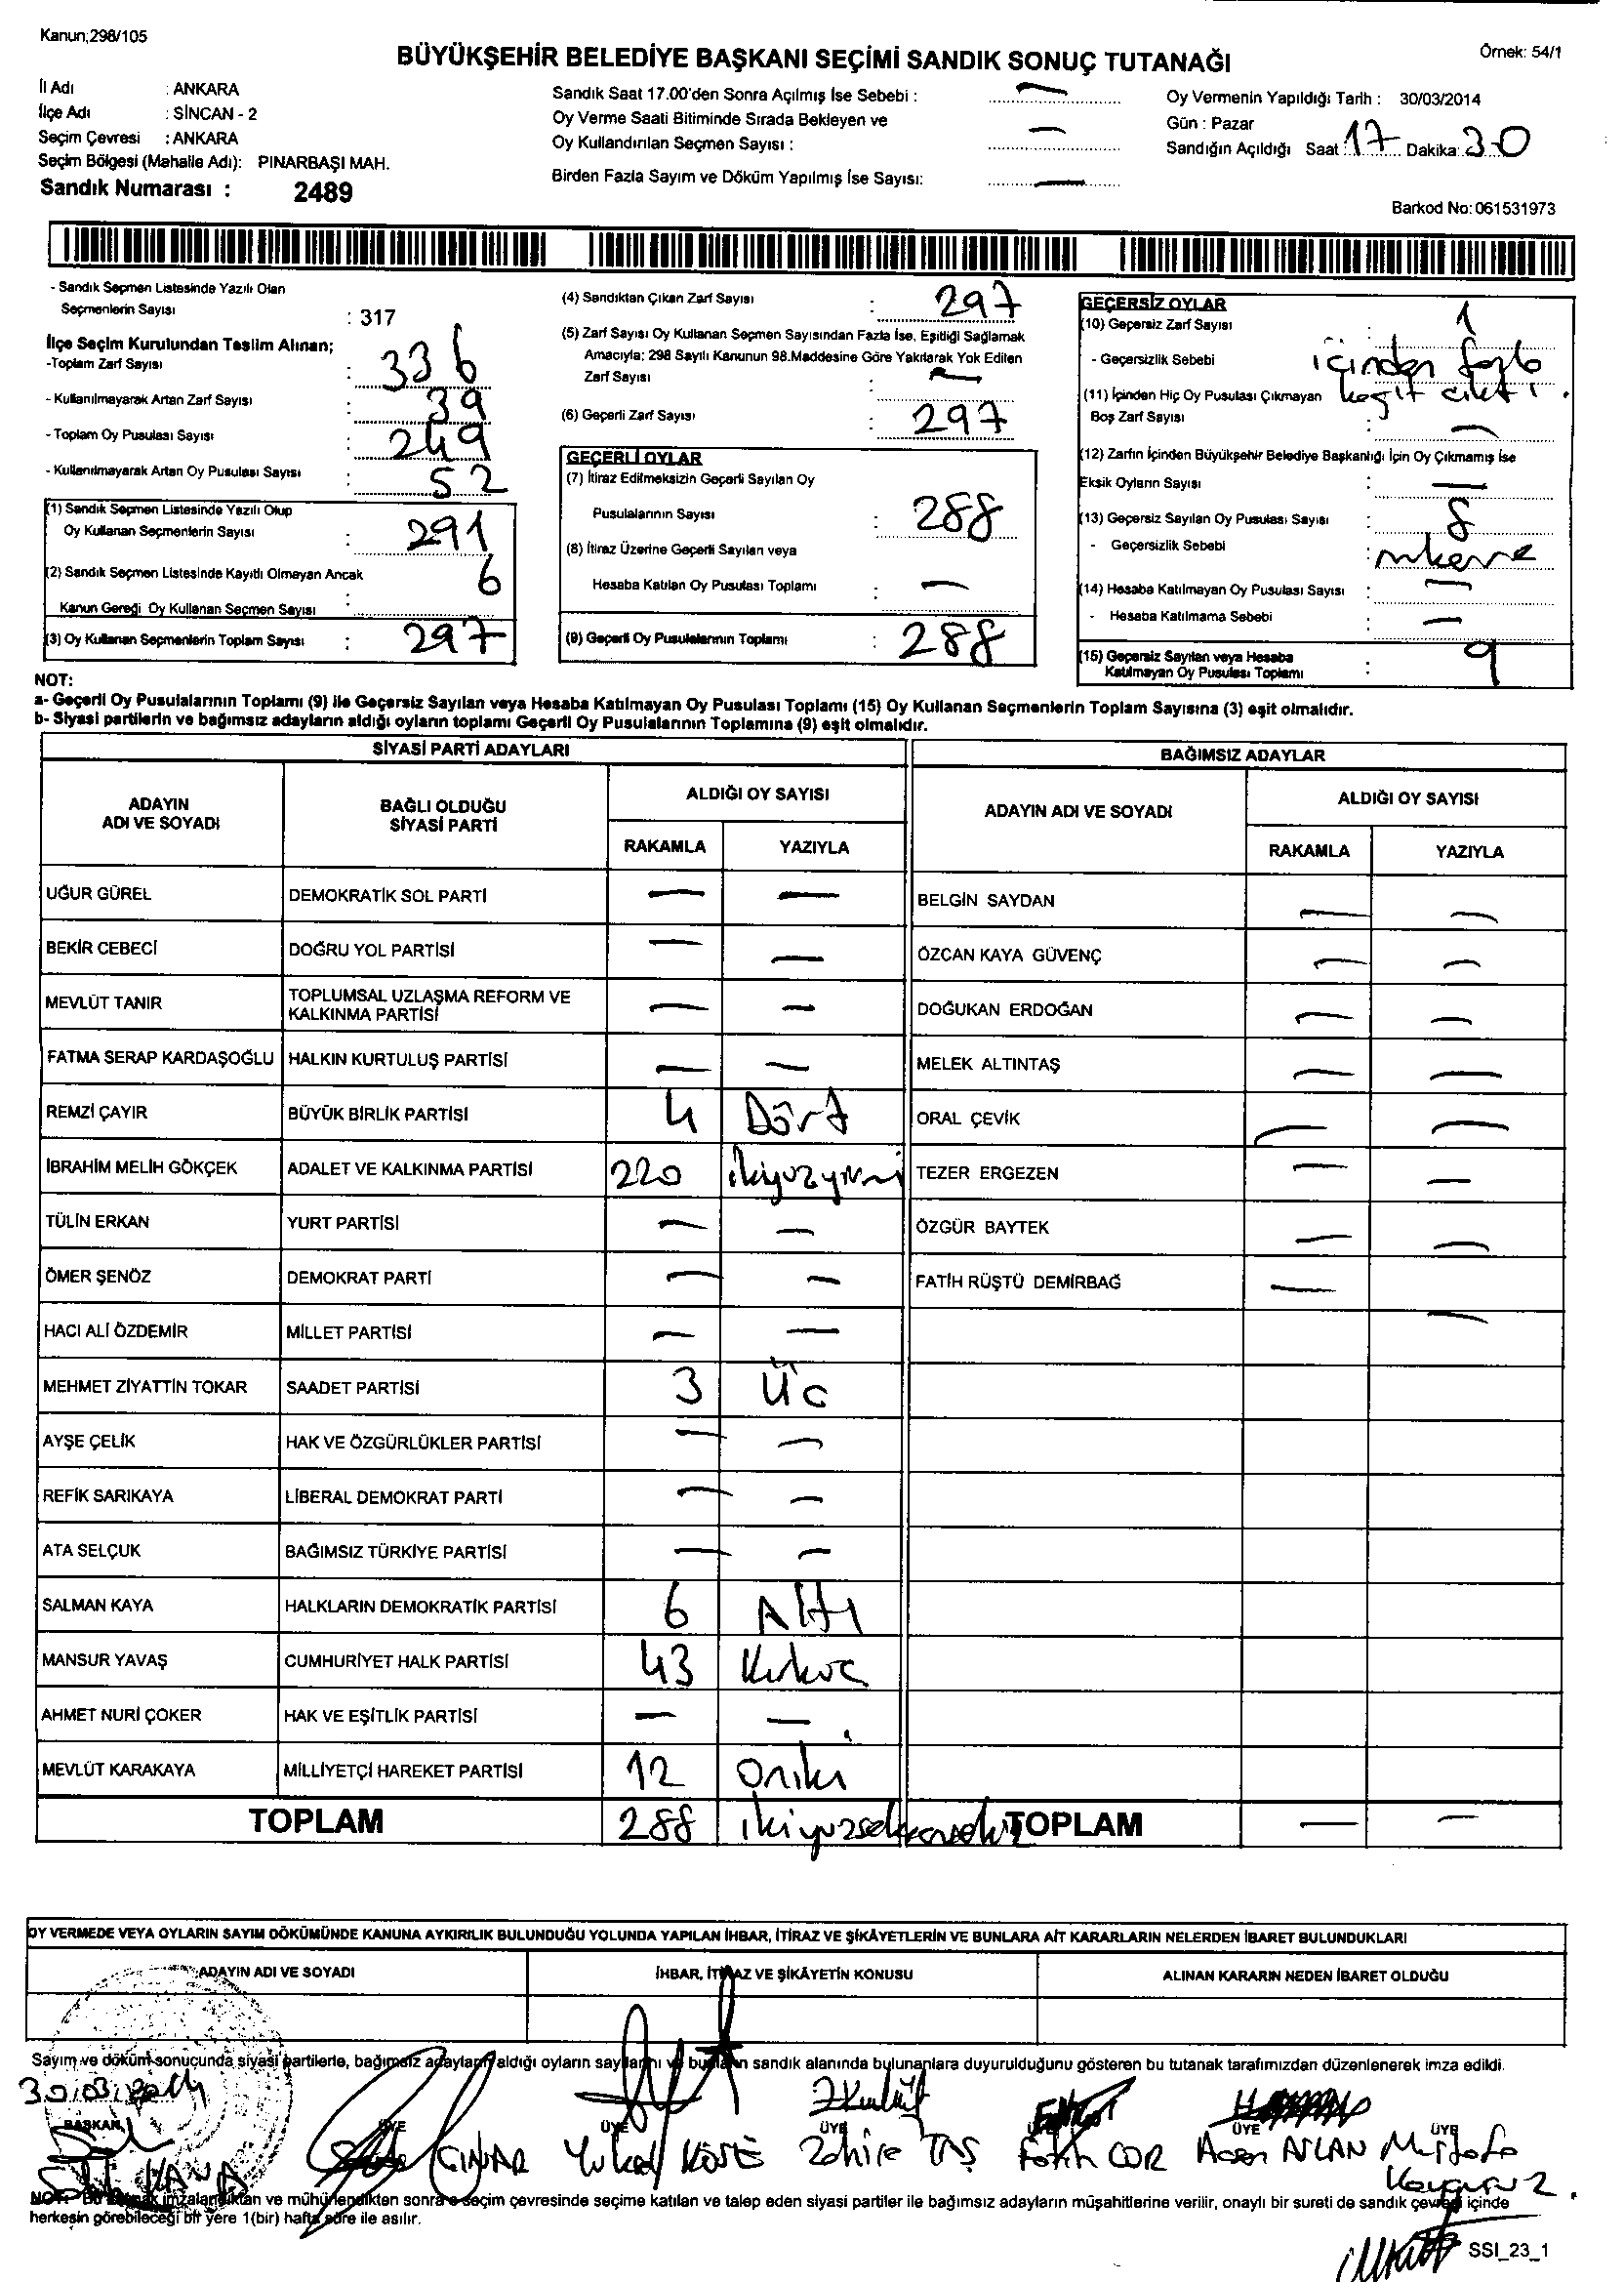 Kanun;298/105
BÜYÜKŞEHİR BELEDİYE BAŞKANI SEÇİMİ SANDIK SONUÇ TUTANAĞI
Örnek: 54/1
İl Adı : ANKARA
İlçe Adı : SİNCAN - 2
Seçim Çevresi : ANKARA
Seçim Bölgesi (Mahalle Adı): PINARBAŞI MAH.
Sandık Numarası : 2489
Sandık Saat 17.00'den Sonra Açılmış İse Sebebi : —
Oy Verme Saati Bitiminde Sırada Bekleyen ve
Oy Kullandırılan Seçmen Sayısı : —
Birden Fazla Sayım ve Döküm Yapılmış İse Sayısı: —
Oy Vermenin Yapıldığı Tarih : 30/03/2014
Gün : Pazar
Sandığın Açıldığı Saat 17 Dakika: 30
Barkod No: 061531973
- Sandık Seçmen Listesinde Yazılı Olan
Seçmenlerin Sayısı : 317
İlçe Seçim Kurulundan Teslim Alınan;
-Toplam Zarf Sayısı : 336
- Kullanılmayarak Artan Zarf Sayısı : 39
- Toplam Oy Pusulası Sayısı : 249
- Kullanılmayarak Artan Oy Pusulası Sayısı : 52
(1) Sandık Seçmen Listesinde Yazılı Olup
Oy Kullanan Seçmenlerin Sayısı : 291
(2) Sandık Seçmen Listesinde Kayıtlı Olmayan Ancak
Kanun Gereği Oy Kullanan Seçmen Sayısı : 6
(3) Oy Kullanan Seçmenlerin Toplam Sayısı : 297
(4) Sandıktan Çıkan Zarf Sayısı : 297
(5) Zarf Sayısı Oy Kullanan Seçmen Sayısından Fazla İse, Eşitliği Sağlamak
Amacıyla; 298 Sayılı Kanunun 98.Maddesine Göre Yakılarak Yok Edilen
Zarf Sayısı : —
(6) Geçerli Zarf Sayısı : 297
GEÇERLİ OYLAR
(7) İtiraz Edilmeksizin Geçerli Sayılan Oy
Pusulalarının Sayısı : 288
(8) İtiraz Üzerine Geçerli Sayılan veya
Hesaba Katılan Oy Pusulası Toplamı : —
(9) Geçerli Oy Pusulalarının Toplamı : 288
GEÇERSİZ OYLAR
(10) Geçersiz Zarf Sayısı : 1
- Geçersizlik Sebebi : içinden fazla
kağıt çıktı.
(11) İçinden Hiç Oy Pusulası Çıkmayan
Boş Zarf Sayısı : —
(12) Zarfın İçinden Büyükşehir Belediye Başkanlığı İçin Oy Çıkmamış İse
Eksik Oyların Sayısı : —
(13) Geçersiz Sayılan Oy Pusulası Sayısı : 8
- Geçersizlik Sebebi :
(14) Hesaba Katılmayan Oy Pusulası Sayısı : —
- Hesaba Katılmama Sebebi : —
(15) Geçersiz Sayılan veya Hesaba
Katılmayan Oy Pusulası Toplamı : 9
NOT:
a- Geçerli Oy Pusulalarının Toplamı (9) ile Geçersiz Sayılan veya Hesaba Katılmayan Oy Pusulası Toplamı (15) Oy Kullanan Seçmenlerin Toplam Sayısına (3) eşit olmalıdır.
b- Siyasi partilerin ve bağımsız adayların aldığı oyların toplamı Geçerli Oy Pusulalarının Toplamına (9) eşit olmalıdır.
SİYASİ PARTİ ADAYLARI
ADAYIN ADI VE SOYADI BAĞLI OLDUĞU SİYASİ PARTİ ALDIĞI OY SAYISI
RAKAMLA YAZIYLA
UĞUR GÜREL DEMOKRATİK SOL PARTİ — —
BEKİR CEBECİ DOĞRU YOL PARTİSİ — —
MEVLÜT TANIR TOPLUMSAL UZLAŞMA REFORM VE KALKINMA PARTİSİ — —
FATMA SERAP KARDAŞOĞLU HALKIN KURTULUŞ PARTİSİ — —
REMZİ ÇAYIR BÜYÜK BİRLİK PARTİSİ 4 Dört
İBRAHİM MELİH GÖKÇEK ADALET VE KALKINMA PARTİSİ 220 ikiyüzyirmi
TÜLİN ERKAN YURT PARTİSİ — —
ÖMER ŞENÖZ DEMOKRAT PARTİ — —
HACI ALİ ÖZDEMİR MİLLET PARTİSİ — —
MEHMET ZİYATTİN TOKAR SAADET PARTİSİ 3 Üc
AYŞE ÇELİK HAK VE ÖZGÜRLÜKLER PARTİSİ — —
REFİK SARIKAYA LİBERAL DEMOKRAT PARTİ — —
ATA SELÇUK BAĞIMSIZ TÜRKİYE PARTİSİ — —
SALMAN KAYA HALKLARIN DEMOKRATİK PARTİSİ 6 Altı
MANSUR YAVAŞ CUMHURİYET HALK PARTİSİ 43
AHMET NURİ ÇOKER HAK VE EŞİTLİK PARTİSİ — —
MEVLÜT KARAKAYA MİLLİYETÇİ HAREKET PARTİSİ 12 Oniki
TOPLAM 288 ikiyüzseksensekiz
BAĞIMSIZ ADAYLAR
ADAYIN ADI VE SOYADI ALDIĞI OY SAYISI
RAKAMLA YAZIYLA
BELGİN SAYDAN — —
ÖZCAN KAYA GÜVENÇ — —
DOĞUKAN ERDOĞAN — —
MELEK ALTINTAŞ — —
ORAL ÇEVİK — —
TEZER ERGEZEN — —
ÖZGÜR BAYTEK — —
FATİH RÜŞTÜ DEMİRBAĞ — —
TOPLAM — —
OY VERMEDE VEYA OYLARIN SAYIM DÖKÜMÜNDE KANUNA AYKIRILIK BULUNDUĞU YOLUNDA YAPILAN İHBAR, İTİRAZ VE ŞİKÂYETLERİN VE BUNLARA AİT KARARLARIN NELERDEN İBARET BULUNDUKLARI
ADAYIN ADI VE SOYADI İHBAR, İTİRAZ VE ŞİKÂYETİN KONUSU ALINAN KARARIN NEDEN İBARET OLDUĞU
Sayım ve döküm sonucunda siyasi partilerle, bağımsız adayların aldığı oyların sayılarını ve bunların sandık alanında bulunanlara duyurulduğunu gösteren bu tutanak tarafımızdan düzenlenerek imza edildi.
30.03.2014
BAŞKAN ÜYE ÜYE ÜYE ÜYE ÜYE
ÇINAR Yüksel KÖSE Zahire TAŞ Fatih COR ASLAN Mustafa
NOT: Bu tutanak imzalandıktan ve mühürlendikten sonra o seçim çevresinde seçime katılan ve talep eden siyasi partiler ile bağımsız adayların müşahitlerine verilir, onaylı bir sureti de sandık çevresi içinde
herkesin görebileceği bir yere 1(bir) hafta süre ile asılır.
SSI_23_1